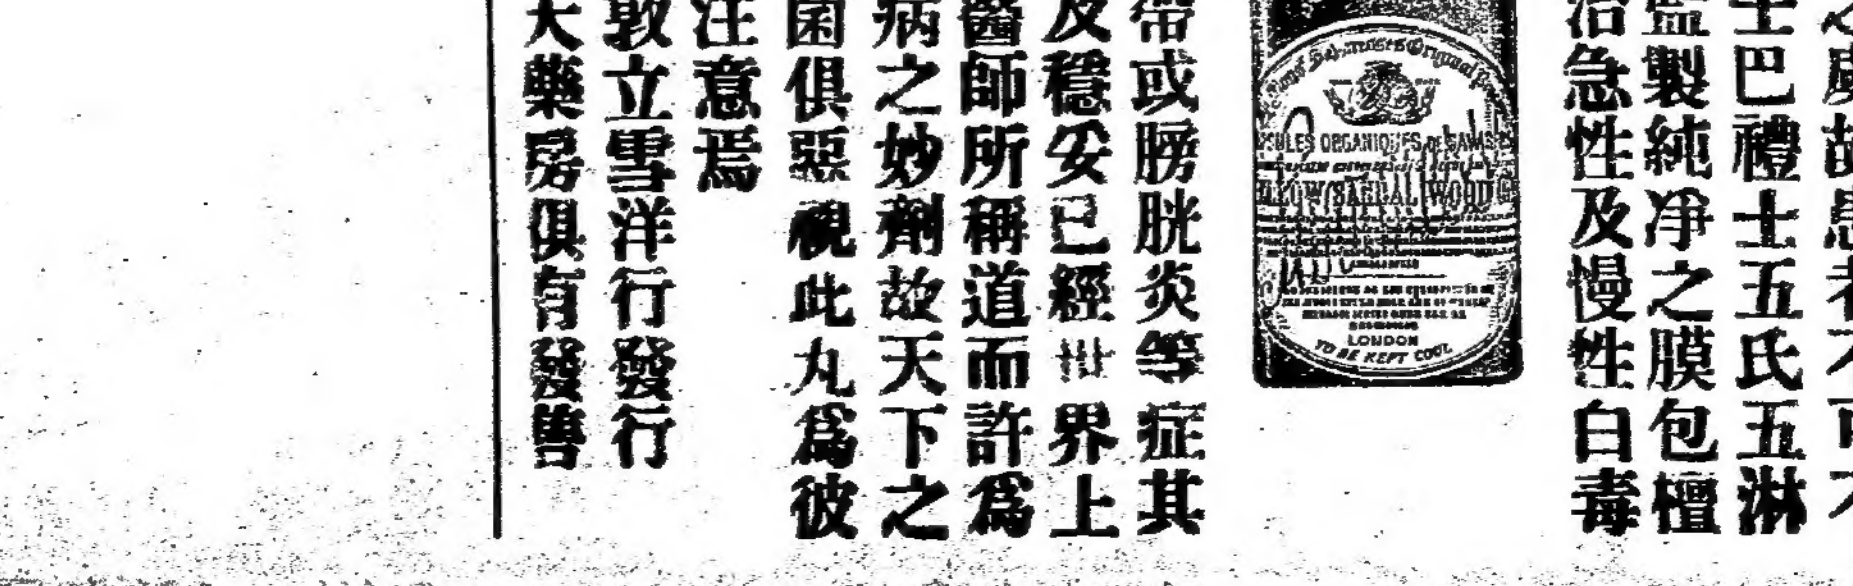 慮故患者不可不
士巴禮士五氏五淋
監製純净之膜包檀
治急性及慢性白毒
ORGANIQUES
SANDAL WOOD
LONDON
TO BE KEPT COOL
帶或膀胱炎等症其
及穩妥已經世界上
醫師所稱道而許為
病之妙劑故天下之
菌俱惡視此丸為彼
注意焉
敦立雪洋行發行
大藥房俱有發售